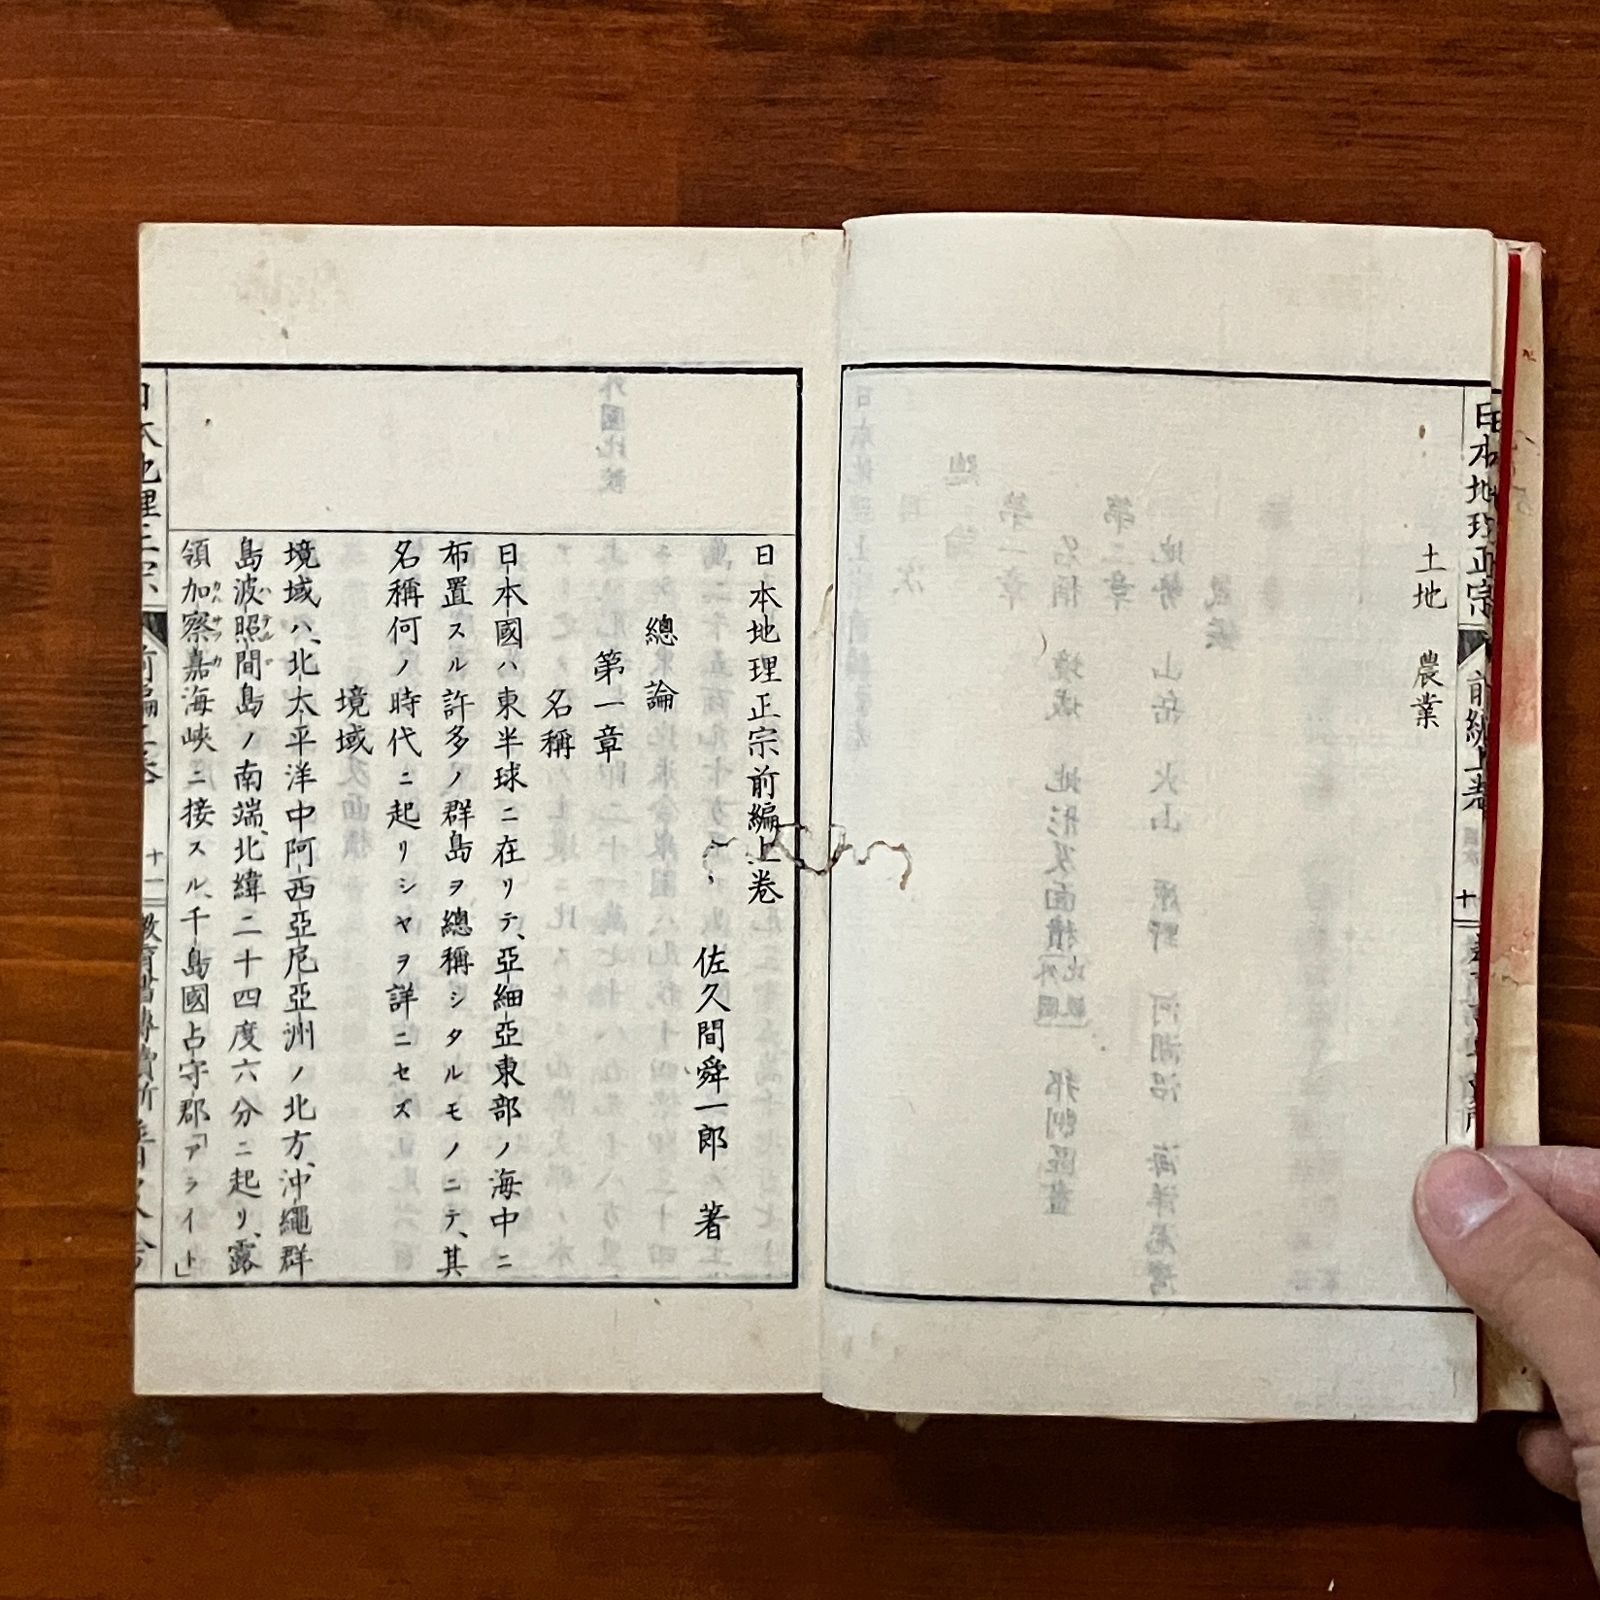 日本地理正宗
前編上卷
十
土地　農業
日本地理正宗前編上卷
佐久間舜一郎　著
總論
第一章
名稱
日本國ハ東半球ニ在リテ、亞細亞東部ノ海中ニ
布置スル許多ノ群島ヲ總稱シタルモノニテ、其
名稱何ノ時代ニ起リシヤヲ詳ニセズ
境域
境域ハ、北太平洋中阿西亞尼亞洲ノ北方、沖繩群
島波照間島ノ南端、北緯二十四度六分ニ起リ、露
領加察嘉海峽ニ接スル、千島國占守郡「アライト」
十一